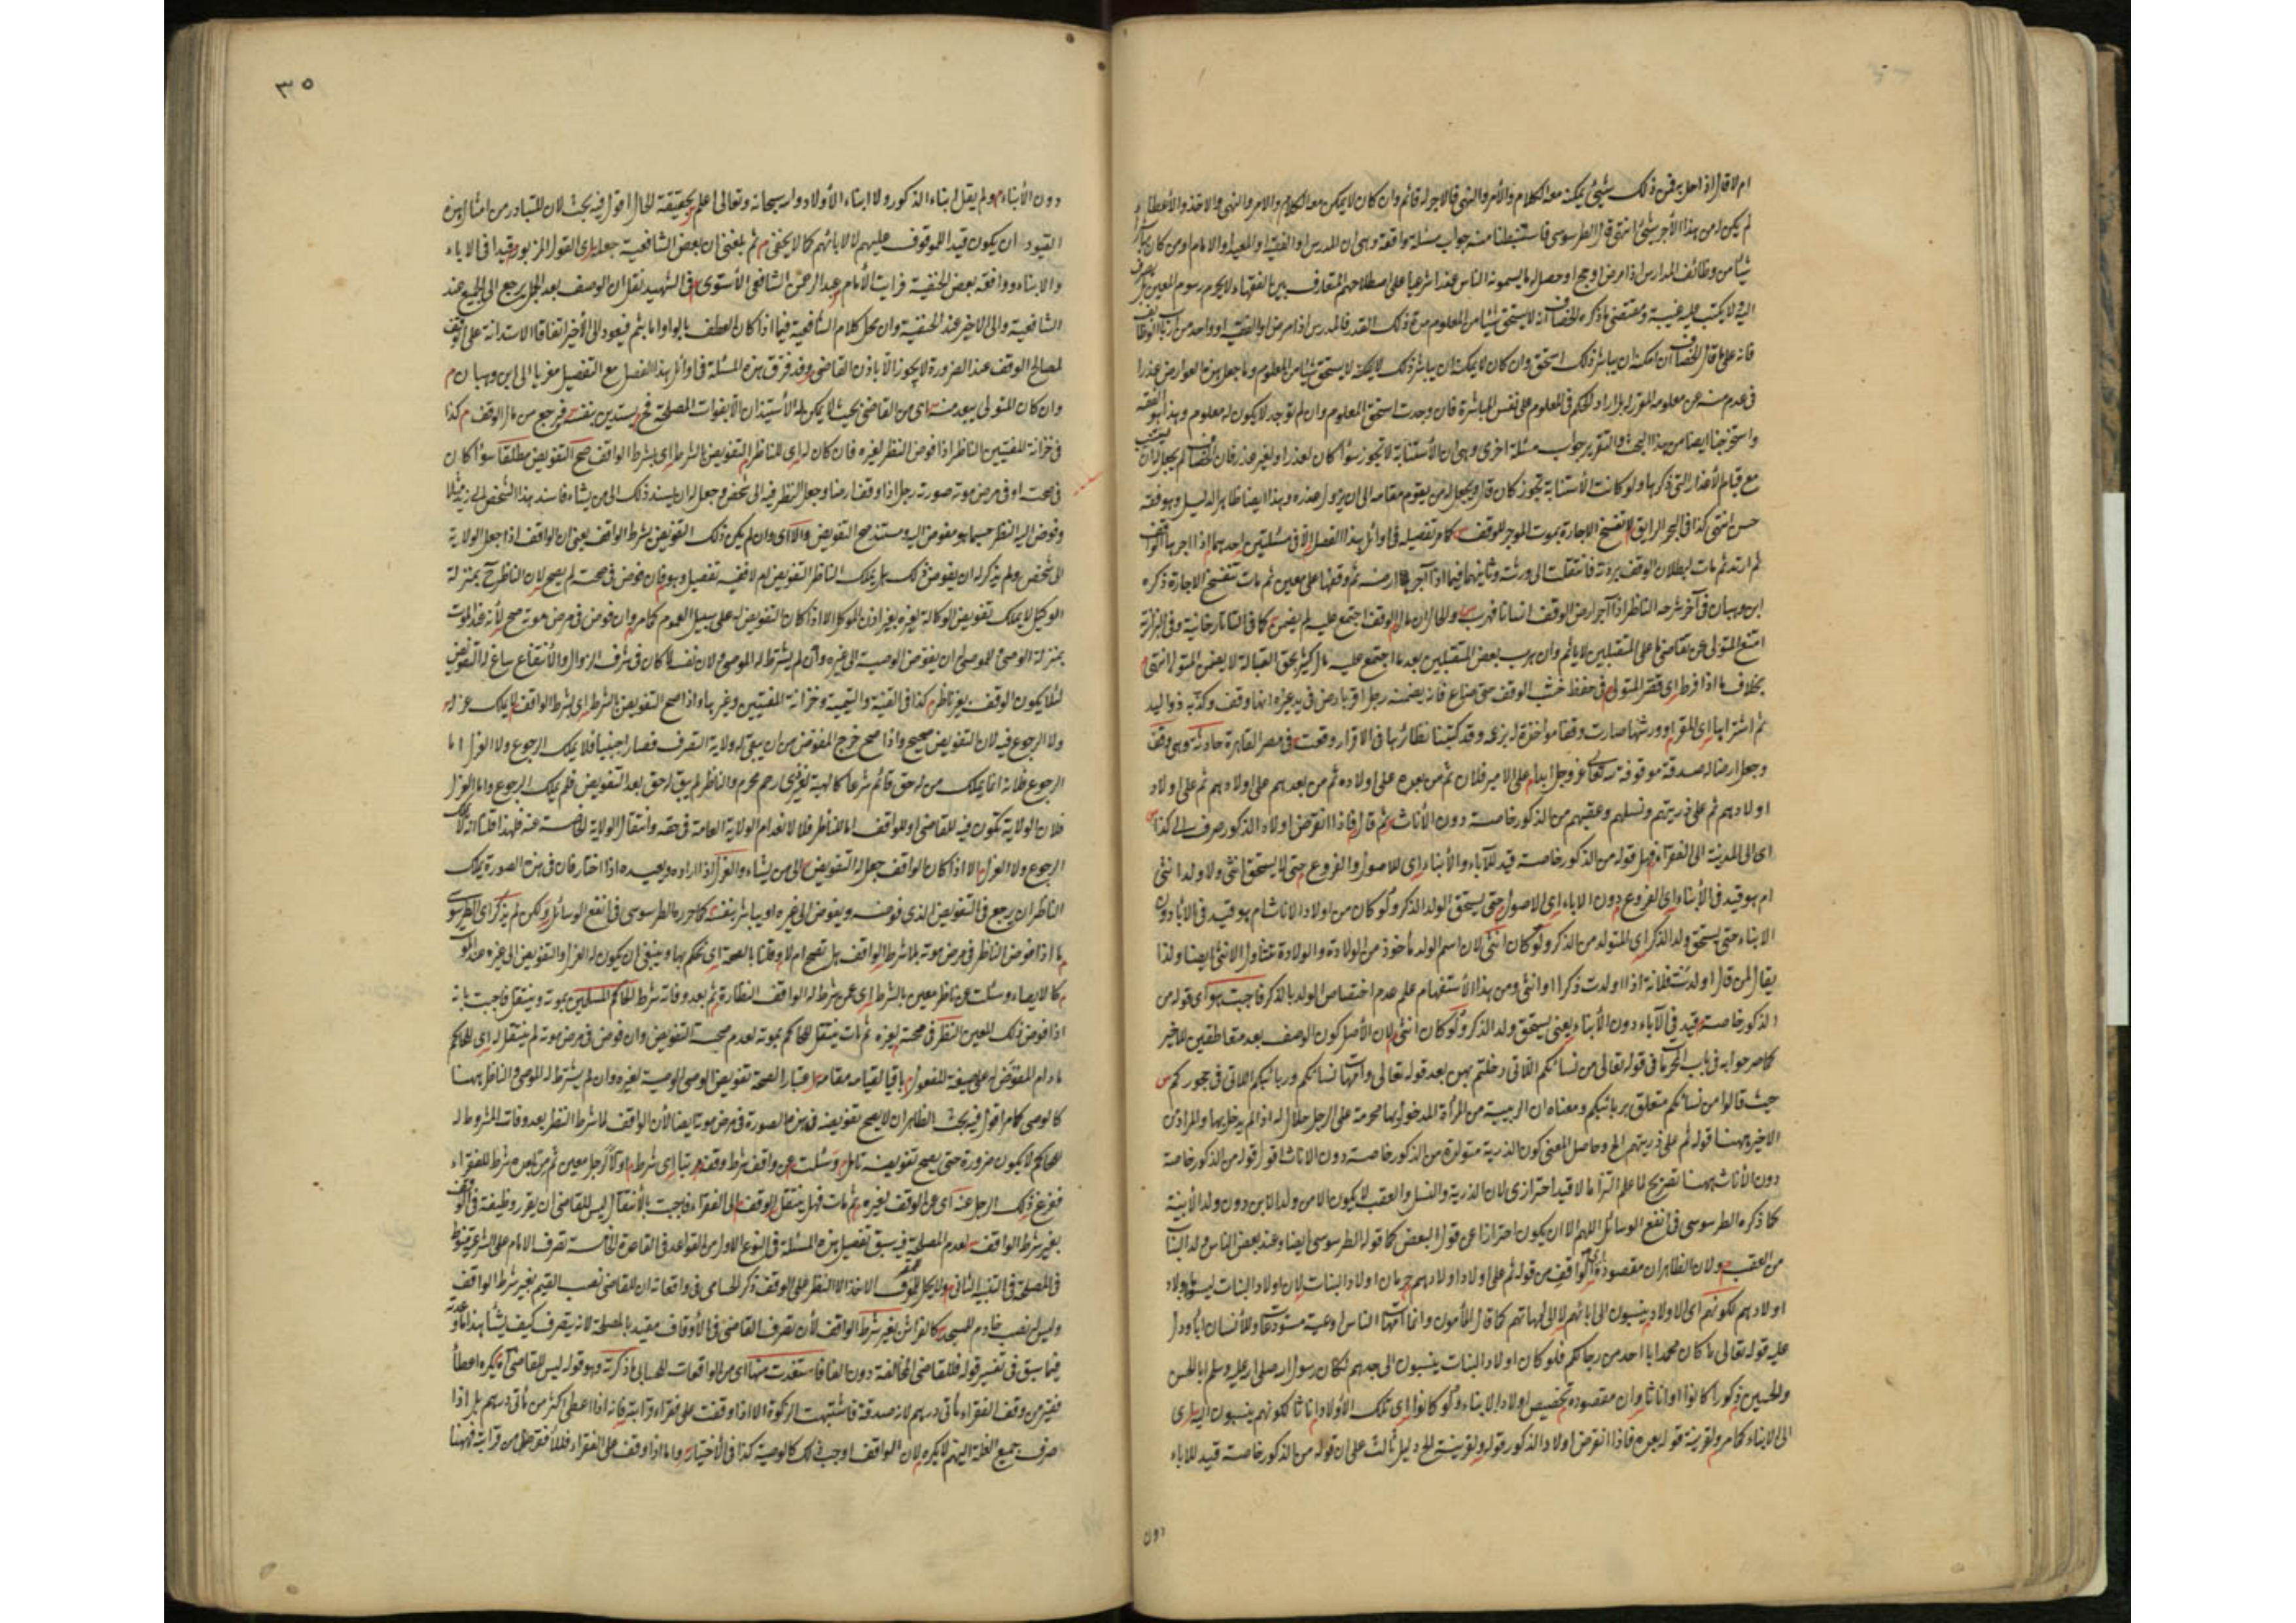 ام لا قال اذا حل به من ذلك شيئ يمكنه معه الكلام والأمر والنهى فالاجر له قائم وان كان لا يمكن معه الكلام والامر والنهى والاخذ والأعطاء
لم يكن له من هذا الأجر شئ انتهى قال الطرسوسى فاستنبطنا منه جواب مسئلة واقعة وهى ان المدرس او الفقيه او المعيد او الامام او من كان
شيئا من وظائف المدارس اذا مرض او حج او حصل له ما يسمونه الناس عذرا شرعيا على اصطلاحهم المتعارف بين الفقهاء لا يحرم رسوم المعين بل
اليه ولا يكتب عليه غيبة ومقتضى ما ذكره الخصاف انه لا يستحق شيئا من المعلوم مدة ذلك القدر فالمدرس اذا مرض او الفقيه او واحد من
فانه على ما قال الخصاف ان امكنه ان يباشر ذلك استحق وان كان لا يمكنه ان يباشر ذلك لا يستحق شيئا من المعلوم وما جعل هذه العوارض عذرا
فى عدم منعه عن معلومه المقرر له بل ادار الحكم فى المعلوم على نفس المباشرة فان وجدت استحق المعلوم وان لم توجد لا يكون له معلوم وهذا هو الفقه
واستخرجنا ايضا من هذا البحث والتقرير جواب مسئلة اخرى وهى ان الأستنابة لا تجوز سواء كان لعذر او لغير عذر فان الخصاف لم يجعل له ان يستنيب
مع قيام الأعذار التى ذكرها ولو كانت الأستنابة تجوز كان قال ويجعل له من يقوم مقامه الى ان يزول عذره وهذا ايضا ظاهر الدليل وهو فقه
حسن انتهى كذا فى البحر الرايق لا تفسخ الاجارة بموت الموجر للوقف كما مر تفصيله فى اوائل هذا الفصل الا فى مسئلتين احديهما اذا اجرها الواقف
ثم ارتد ثم مات لبطلان الوقف بردته فانتقلت الى ورثته وثانيهما فيما اذا آجر ارضه ثم وقفها على معين ثم مات تنفسخ الاجارة ذكره
ابن وهبان فى آخر شرحه الناظر اذا آجر ارض الوقف انسانا فهرب والحال ان مال الوقف اجتمع عليه لم يضمن كما فى التاتارخانية وفى البزازية
امتنع المتولى عن تقاضى ما على المتقبلين لا ياثم وان هرب بعض المتقبلين بعد ما اجتمع عليه مال كثير بحق القبالة لا يضمن المتولى انتهى
بخلاف ما اذا فرط اى قصر المتولى فى حفظ خشب الوقف حتى ضاع فانه يضمنه رجل اقر بارض فى يد غيره انها وقف وكذبه ذو اليد
ثم اشتراها اى المقر او ورثها صارت وقفا مواخذة له بزعمه وقد كتبنا نظائرها فى الاقرار وقعت فى مصر القاهرة حادثة وهى وقف
وجعل ارضا له صدقة موقوفة لله تعالى عز وجل ابدا على الامير فلان ثم من بعده على اولاده ثم من بعدهم على اولادهم ثم على اولاد
اولادهم ثم على ذريتهم ونسلهم وعقبهم من الذكور خاصة دون الأناث ثم قال فاذا انقرض اولاد الذكور صرف الى كذا
اى الى المدينة الى الفقراء فهل قوله من الذكور خاصة قيد للآباء والأبناء اى للاصول والفروع حتى لا يستحق انثى ولا ولد انثى
ام هو قيد فى الأبناء اى الفروع دون الاباء اى الاصول حتى يستحق الولد الذكر ولو كان من اولاد الاناث ام هو قيد فى الاباء دون
الابناء حتى يستحق ولد الذكر اى المتولد من الذكر ولو كان انثى لان اسم الولد مأخوذ من الولادة والولادة تتناول الانثى ايضا ولذا
يقال لمن قال اولدت فلانة اذا اولدت ذكرا او انثى ومن هذا الأستفهام علم عدم اختصاص الولد بالذكر فاجبت هو اى قوله من
الذكور خاصة قيد فى الآباء دون الأبناء يعنى يستحق ولد الذكر ولو كان انثى لان الأصل كون الوصف بعد متعاطفين للاخير
كما صرحوا به فى باب المحرمات فى قوله تعالى من نسائكم اللاتى دخلتم بهن بعد قوله تعالى وامهات نسائكم وربائبكم اللاتى فى حجوركم من
حيث قالوا من نسائكم متعلق بربائبكم ومعناه ان الربيبة من المرأة المدخول بها محرمة على الرجل حلال له اذا لم يدخل بها والمراد من
الاخير ههنا قوله ثم على ذريتهم الخ وحاصل المعنى كون الذرية متولدة من الذكور خاصة دون الاناث اقول قوله من الذكور خاصة
دون الأناث ههنا تصريح لما علم التزاما لا قيد احترازى لان الذرية والنسل والعقب لا يكون الا من ولد الابن دون ولد الأبنية
كما ذكره الطرسوسى فى انفع الوسائل اللهم الا ان يكون احترازا عن قول البعض كما قوله الطرسوسى ايضا وعند بعض الناس ولد البنات
من العقب ولان الظاهر ان مقصوده الواقف من قوله ثم على اولاد اولادهم حرمان اولاد البنات لان اولاد البنات ليسوا باولاد
اولادهم لكونهم اى الاولاد ينسبون الى ابائهم لا الى امهاتهم كما قال المأمون وانما امهات الناس اوعية مستودعات وللأنسان اباء ودل
عليه قوله تعالى ما كان محمد ابا احد من رجالكم فلو كان اولاد البنات ينسبون الى جدهم لكان رسول الله صلى الله عليه وسلم ابا الحسن
والحسين ذكورا كانوا او اناثا وان مقصوده تخصيص اولاد الابناء ولو كانوا اى تلك الأولاد اناثا لكونهم ينسبون اليه اى
الى الابناء كما مر ولقرينة قوله بعده فاذا انقرض اولاد الذكور قوله ولقرينة الخ دليل ثالث على ان قوله من الذكور خاصة قيد للاباء
دون
٣٥
دون الأبناء ولم يقل ابناء الذكور ولا ابناء الأولاد والله سبحانه وتعالى اعلم بحقيقة الحال اقول فيه بحث لان المتبادر من امثال هذه
القيود ان يكون قيدا للموقوف عليهم لا لابائهم كما لا يخفى ثم بلغنى ان بعض الشافعية جعله اى القول المزبور قيدا فى الاباء
والابناء ووافقه بعض الحنفية فرايت الأمام عبد الرحمن الشافعى الأسنوى فى التمهيد نقل ان الوصف بعد الجمل يرجع الى الجميع عند
الشافعية والى الاخير عند الحنفية وان محل كلام الشافعية فيما اذا كان العطف بالواو اما بثم فيعود الى الأخير اتفاقا الاستدانة على الوقف
لمصالح الوقف عند الضرورة لا يجوز الا باذن القاضى وقد فرق هذه المسئلة فى اوائل هذا الفصل مع التفصيل معزيا الى ابن وهبان
وان كان المتولى يبعد منه اى من القاضى بحيث لا يمكن له الأستيذان الا بفوات المصلحة فح يستدين بنفسه فيرجع من مال الوقف كذا
فى خزانة المفتيين الناظر اذا فوض النظر لغيره فان كان له اى للناظر التفويض بالشرط اى بشرط الواقف صح التفويض مطلقا سواء كان
فى صحته او فى مرض موته صورته رجل اذا وقف ارضا وجعل النظر فيه الى شخص وجعل له ان يسند ذلك الى من يشاء فاسند هذا الشخص الى زيد مثلا
وفوض اليه النظر حسبما هو مفوض اليه ومستند صح التفويض والا اى وان لم يكن ذلك التفويض بشرط الواقف يعنى ان الواقف اذا جعل الولاية
الى شخص ولم يذكر له ان يفوض ذلك هل يملك الناظر التفويض ام لا ففيه تفصيل وهو فان فوض فى صحته لم يصح لان الناظر ح بمنزلة
الوكيل لا يملك تفويض الوكالة لغيره بغير اذن الموكل الا اذا كان التفويض له على سبيل العموم كما مر وان فوض فى مرض موته صح لأنه عند الموت
بمنزلة الوصى وللموصى ان يفوض الوصية الى غيره وان لم يشترط له الموصى ولان نفسه لما كان فى شرف الزوال والأنقطاع ساغ له التفويض
لئلا يكون الوقف بغير ناظر كذا فى القنية واليتيمة وخزانة المفتيين وغيرها واذا صح التفويض بالشرط اى بشرط الواقف لا يملك عزله
ولا الرجوع فيه لان التفويض صحيح واذا صح خرج المفوض من ان يبقى له ولاية التصرف فصار اجنبيا فلا يملك الرجوع ولا العزل اما
الرجوع فلانه انما يملك من له حق قائم شرعا كالهبة لغير ذى رحم محرم والناظر لم يبق له حق بعد التفويض فلم يملك الرجوع واما العزل
فلان الولاية تكون فيه للقاضى او للواقف اما الناظر فلا لانعدام الولاية العامة فى حقه وانتقال الولاية الخاصة عنه فلهذا قلنا انه لا يملك
الرجوع ولا العزل الا اذا كان الواقف جعل له التفويض الى من يشاء والعزل اذا اراده ويعيده اذا اختار فان فى هذه الصورة يملك
الناظر ان يرجع فى التفويض الذى فوضه ويفوض الى غيره او يباشر بنفسه كما حرره الطرسوسى فى انفع الوسائل ولكن لم يذكر اى الطرسوسى
ما اذا فوض الناظر فى مرض موته بلا شرط الواقف هل تصح ام لا وقلنا بالصحة اى نحكم بها وينبغى ان يكون له العزل والتفويض الى غيره عند الموت
كالايصاء وسئلت عن ناظر معين بالشرط اى عن شرط له الواقف النظارة ثم بعد وفاته شرط للحاكم المسلمين بموته وينتقل فاجبت بانه
اذا فوض ذلك المعين النظر فى صحته لغيره ثم مات ينتقل للحاكم بموته لعدم صحة التفويض وان فوض فى مرض موته لم ينتقل له اى للحاكم
ما دام المفوض له على صيغة المفعول باقيا لقيامه مقامه اعتبارا لصحة تفويض الوصى الوصية لغيره وان لم يشترط له الموصى والناظر ههنا
كالوصى كما مر اقول فيه بحث الظاهر ان لا يصح تفويضه فى هذه الصورة فى مرض موته ايضا لأن الواقف لما شرط النظر بعد وفات المشروط له
للحاكم لا يكون ضرورة حتى يصح تفويضه تامل وسئلت عن واقف شرط وقفه مرتبا اى شرط اولا لرجل معين ثم من بعده شرط للفقراء
ففرغ ذلك الرجل عنه اى عن الوقف لغيره ثم مات فهل ينتقل الوقف الى الفقراء فاجبت بالأنتقال ليس للقاضى ان يقرر وظيفة فى الوقف
بغير شرط الواقف لعدم المصلحة فيه سبق تفصيل هذه المسئلة فى النوع الاول من القواعد فى القاعدة الخامسة تصرف الامام على الشرعية منوط
فى المصلحة فى التنبيه الثانى ولا يحل للمقرر الاخذ الا النظر على الوقف ذكر الحسامى فى واقعاته ان للقاضى نصب القيم بغير شرط الواقف
وليس له نصب خادم المسجد كالفراش بغير شرط الواقف لأن تصرف القاضى فى الأوقاف مقيد بالمصلحة لا انه يتصرف كيف يشاء
فيما سبق فى تفسير قوله فللقاضى المخالفة دون الناظر فاستفدت منها اى من الواقعات الحسامى ما ذكرته وهو قوله ليس للقاضى آه يكره اعطاء
فقير من وقف الفقراء مأتى درهم لانه صدقة فاشتبهت الزكوة الا اذا وقفت على فقراء قرابته فانه اذا اعطى اكثر من مأتى درهم بل اذا
صرف جميع الغلة اليهم لا يكره لان الواقف اوجب ذلك كالوصية كذا فى الأختيار واما اذا وقف على الفقراء فللأفقر منهم من قرابته فههنا